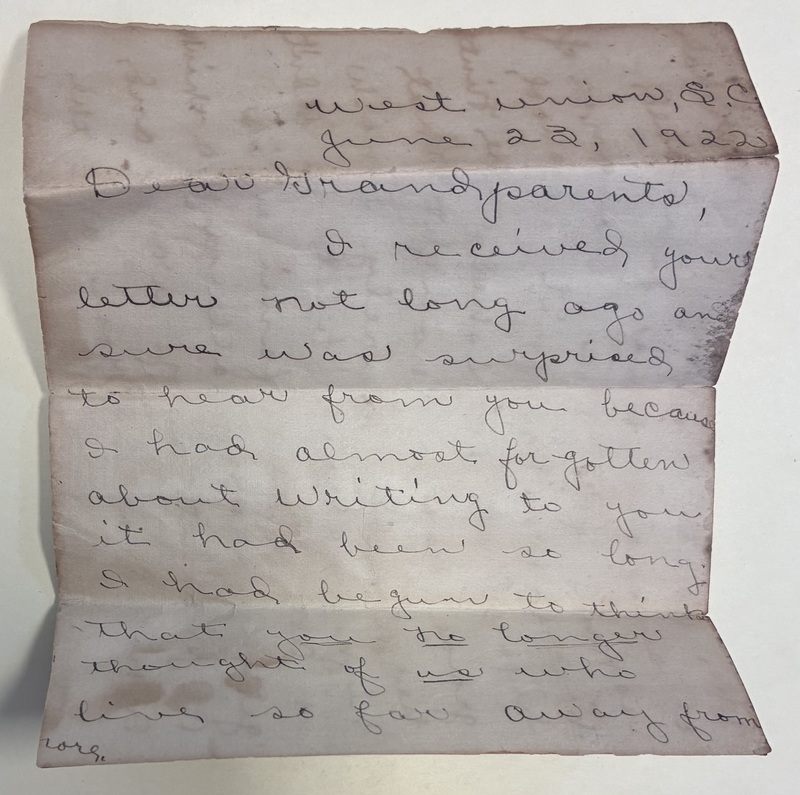 West Union, S.C.
June 23, 1922
Dear Grandparents,
I received your
letter not long ago and
sure was surprised
to hear from you because
I had almost forgotten
about writing to you
it had been so long.
I had begun to think
that you no longer
thought of us who
live so far away from